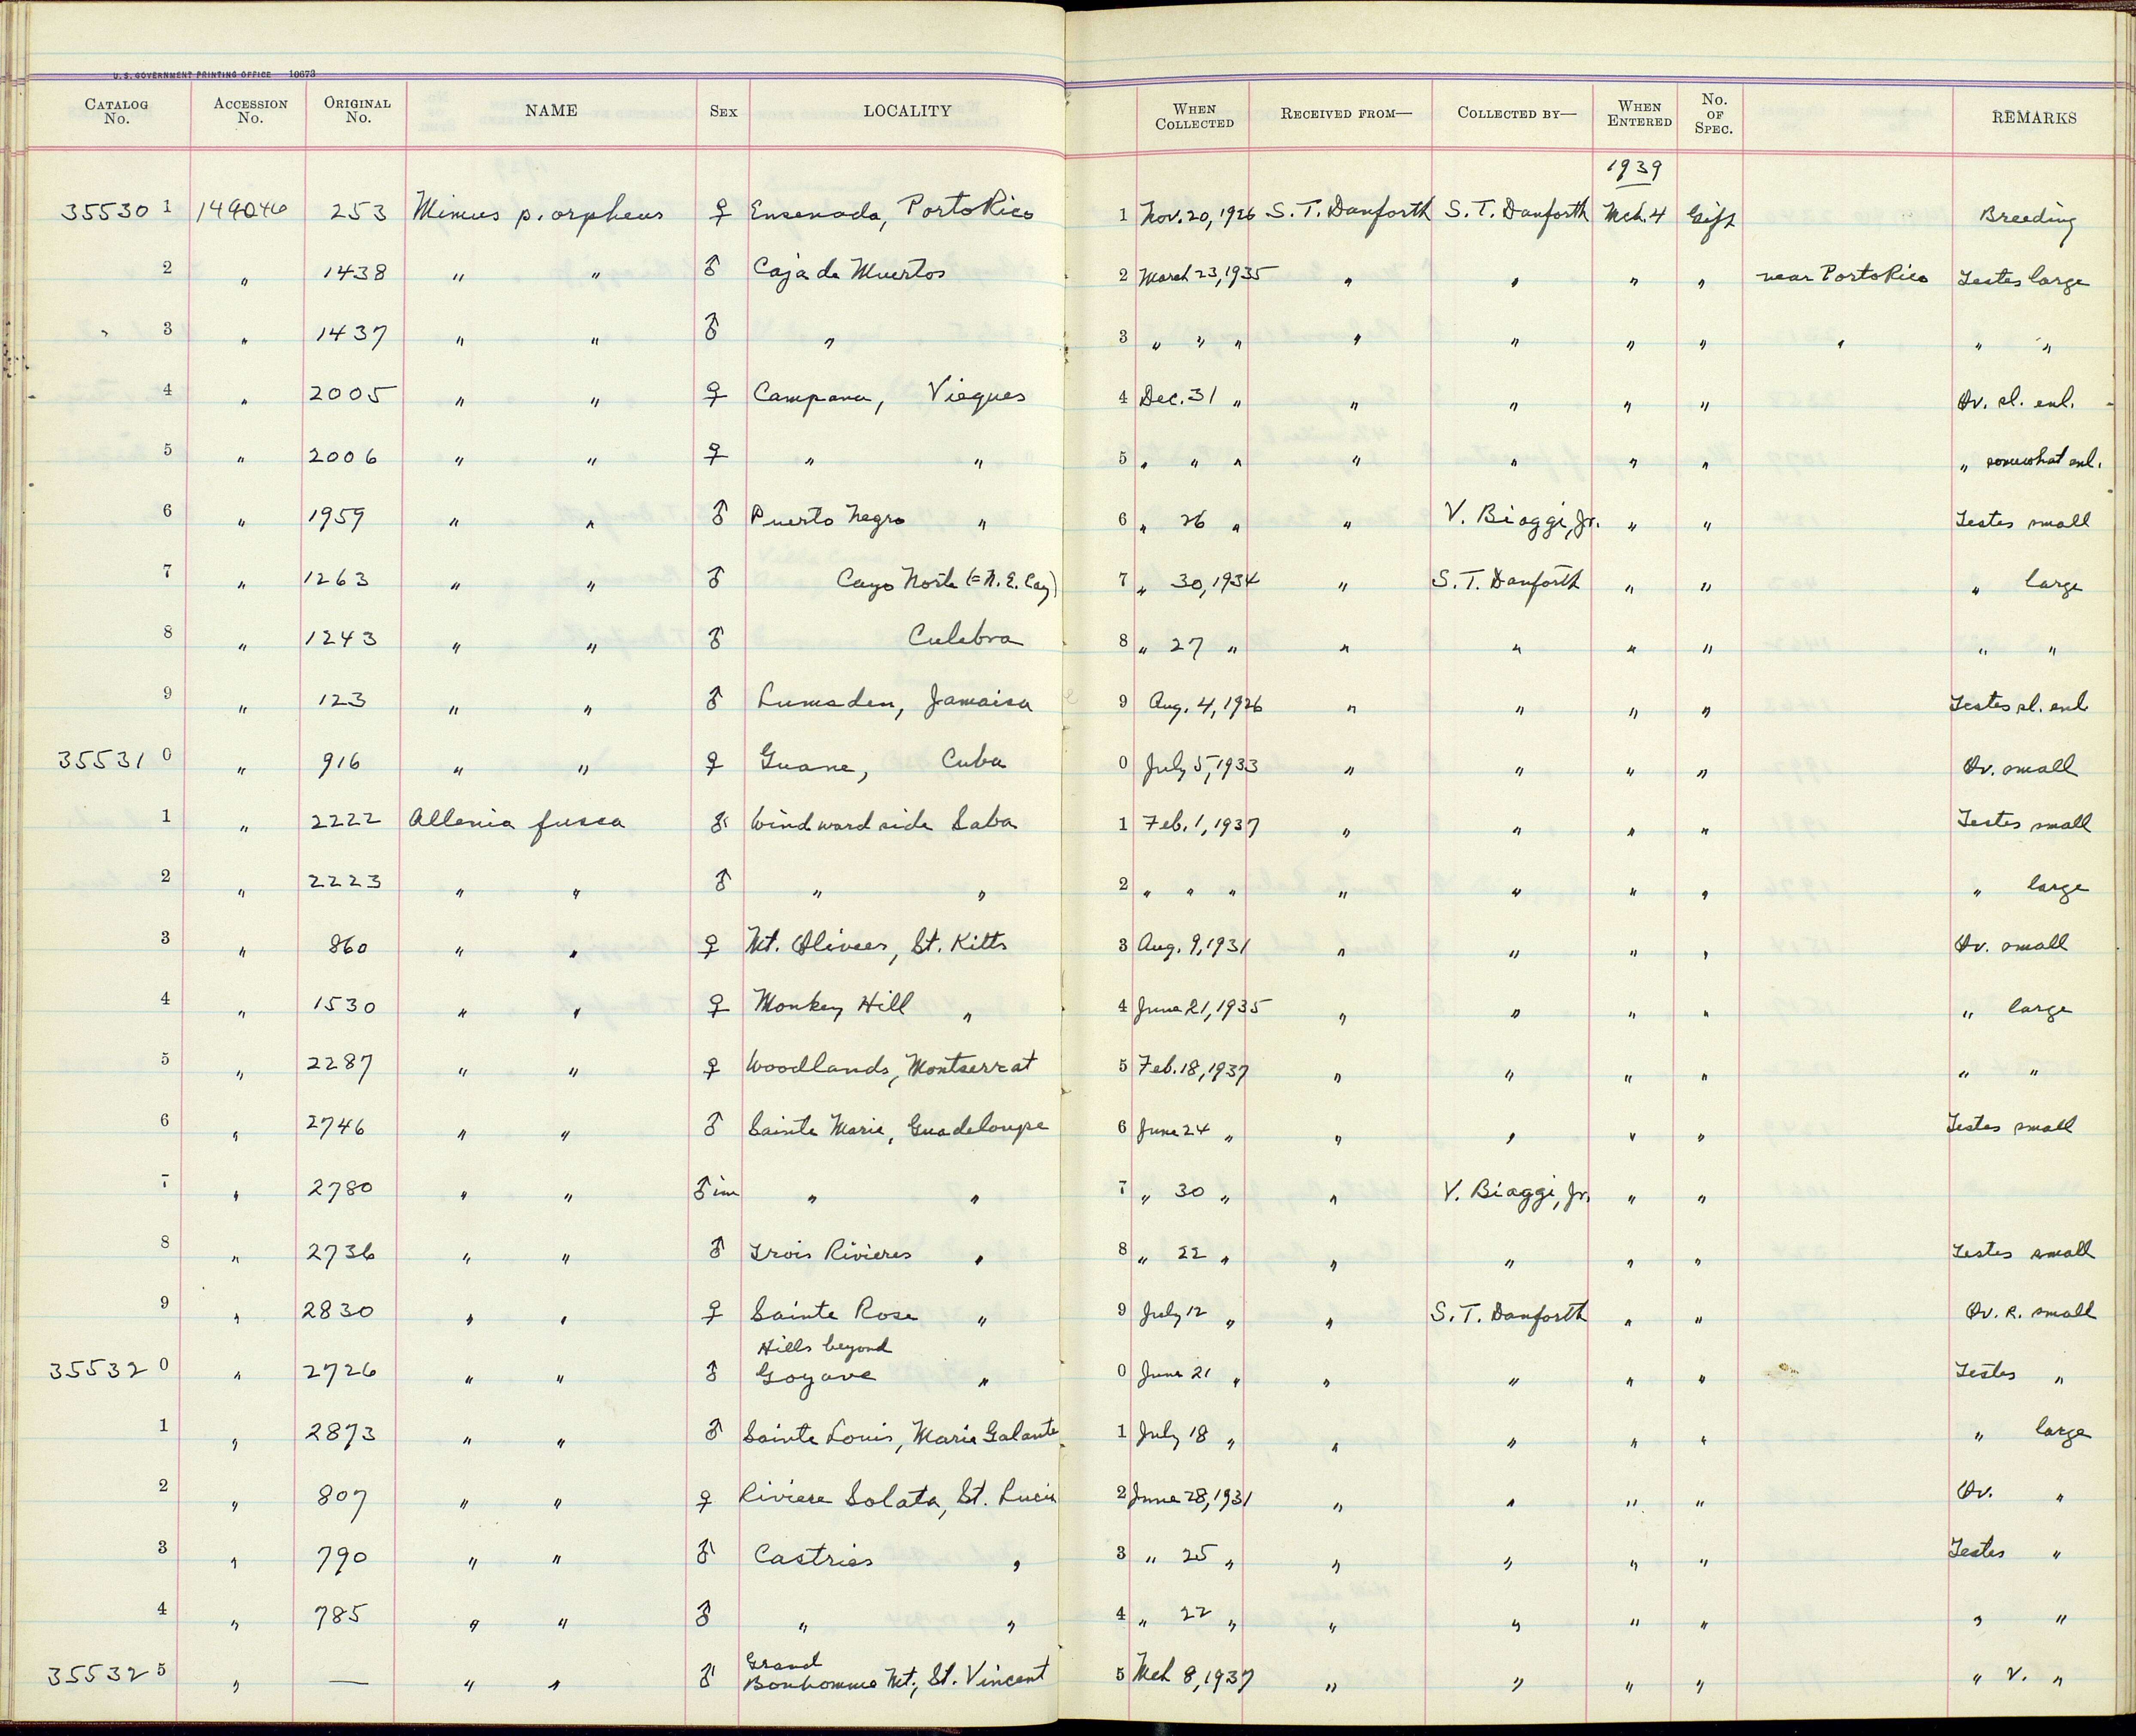 U.S. GOVERNMENT PRINTING OFFICE 10673
CATALOG No. ACCESSION No. ORIGINAL No. NAME SEX LOCALITY WHEN COLLECTED RECEIVED FROM— COLLECTED BY— WHEN ENTERED No. OF SPEC. REMARKS
1939
35530 1 149046 253 Mimus p. orpheus ♀ Ensenada, Porto Rico 1 Nov. 20, 1926 S. T. Danforth S. T. Danforth Mch. 4 Gift Breeding
2 " 1438 " " ♂ Caja de Muertos 2 March 23, 1935 " " " " near Porto Rico Testes large
3 " 1437 " " ♂ " 3 " " " " " " " " " "
4 " 2005 " " ♀ Campana, Vieques 4 Dec. 31 " " " " " Ov. sl. enl.
5 " 2006 " " ♀ " " 5 " " " " " " " " somewhat enl.
6 " 1959 " " ♂ Puerto Negro " 6 " 26 " " V. Biaggi, Jr. " " Testes small
7 " 1263 " " ♂ Cayo Norte (= N. E. Cay) 7 " 30, 1934 " S. T. Danforth " " " large
8 " 1243 " " ♂ Culebra 8 " 27 " " " " " " "
9 " 123 " " ♂ Lumsden, Jamaica 9 Aug. 4, 1926 " " " " Testes sl. enl.
35531 0 " 916 " " ♀ Guane, Cuba 0 July 5, 1933 " " " " Ov. small
1 " 2222 Allenia fusca ♂ Windward side Saba 1 Feb. 1, 1937 " " " " Testes small
2 " 2223 " " ♂ " " 2 " " " " " " " " large
3 " 860 " " ♀ Mt. Olivees, St. Kitts 3 Aug. 9, 1931 " " " " Ov. small
4 " 1530 " " ♀ Monkey Hill " 4 June 21, 1935 " " " " " large
5 " 2287 " " ♀ Woodlands, Montserrat 5 Feb. 18, 1937 " " " " " "
6 " 2746 " " ♂ Sainte Marie, Guadeloupe 6 June 24 " " " " " Testes small
7 " 2780 " " ♂ im " " 7 " 30 " " V. Biaggi, Jr. " "
8 " 2736 " " ♂ Trois Rivieres " 8 " 22 " " " " " Testes small
9 " 2830 " " ♀ Sainte Rose " 9 July 12 " " S. T. Danforth " " Ov. R. small
Hills beyond
35532 0 " 2726 " " ♂ Goyave " 0 June 21 " " " " " Testes "
1 " 2873 " " ♂ Sainte Louis, Marie Galante 1 July 18 " " " " " " large
2 " 807 " " ♀ Riviere Solata, St. Lucia 2 June 28, 1931 " " " " Ov. "
3 " 790 " " ♂ Castries " 3 " 25 " " " " " Testes "
4 " 785 " " ♂ " " 4 " 22 " " " " " " "
Grand
35532 5 " — " " ♂ Bonhomme Mt., St. Vincent 5 Mch 8, 1937 " " " " " V. "